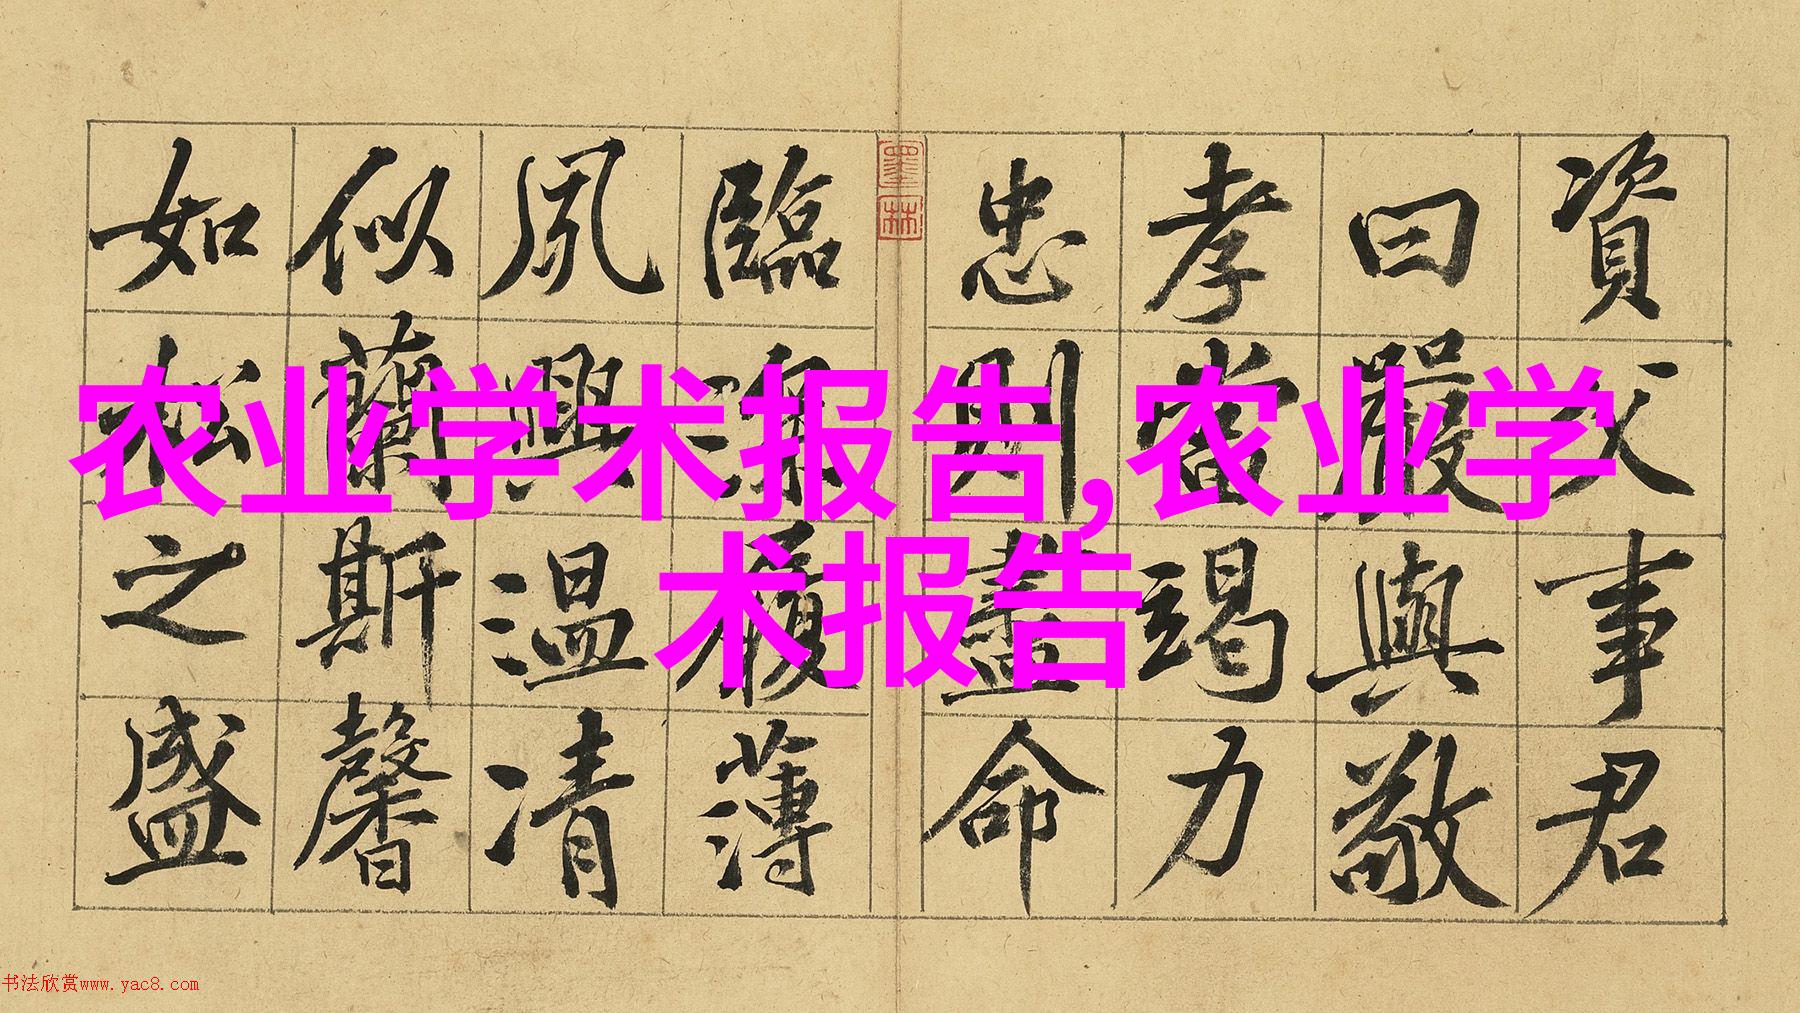 資父事君
曰嚴與敬
孝當竭力
忠則盡命
墨林
臨深履薄
夙興溫凊
似蘭斯馨
如松之盛
农业学术报告,农业学
术报告
书法欣赏www.yac8.com